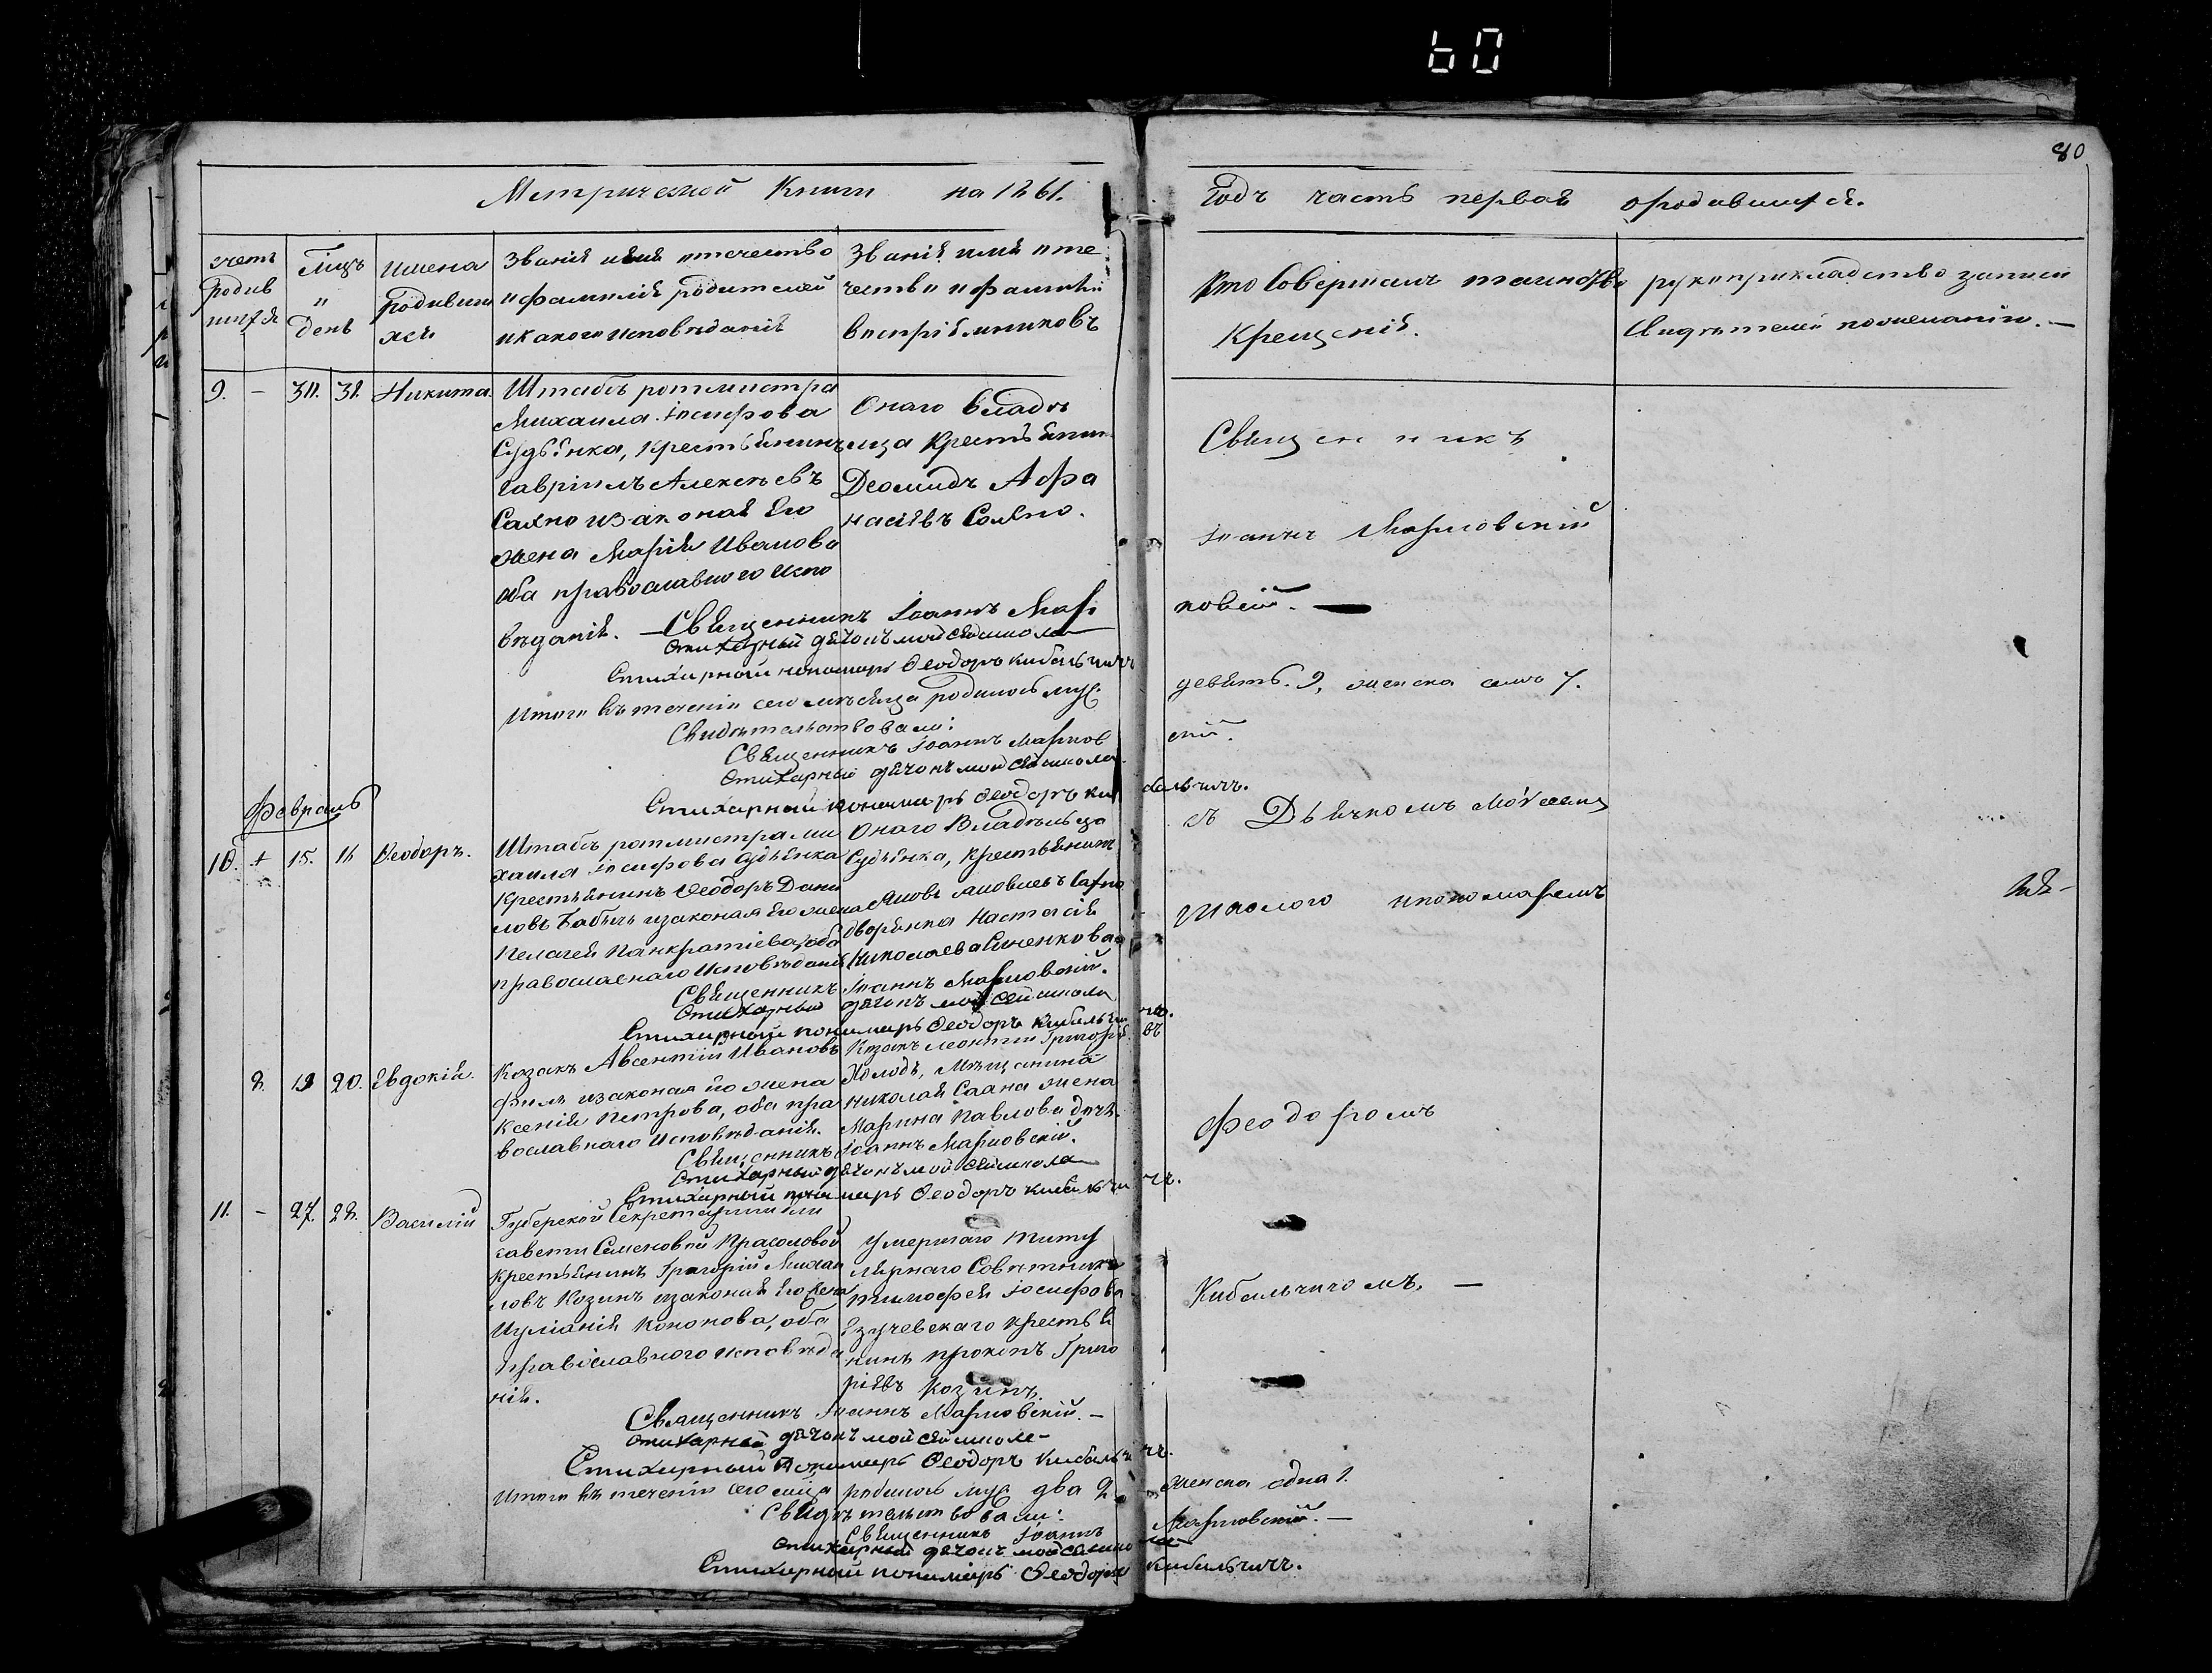 60
80
Метрической Книги на 1861.
Годъ часть первая о родившихся.
счетъ родив шихся
Мцъ и день
Имена родивши хся
Званія имя отчество и фамилія родителей и какого исповѣданія
Званіе имя отче ство и фамилія воспріемниковъ
Кто Совершалъ таинство Крещенія.
рукоприкладство записи Свидѣтелей по желанію. —
9. – 30. 31. Никита.
Штабъ ротмистра
Михаила Іосифова
Судьѣнка, крестьянинъ
Гавріилъ Алексѣевъ
Сахно и законая Его
жена Марія Иванова
оба православного испо
вѣданія.
Онаго владѣ
льца Крестьянин
Деомидъ Афа
насіевъ Сахно.
— Священникъ Іоаннъ Мар
ковскій. —
Стихарный дьячокъ Мойсей Школа
Стихарный пономарь Ѳеодоръ Кибальчичъ
Итого въ теченіи сего мѣсяца родилось муж. девять. 9, женска семь 7.
Свидѣтельствовали:
Священникъ Іоаннъ Марковскій.
Стихарный дьячокъ Мойсей Школа
Стихарный пономарь Ѳеодоръ Кибальчичъ.
Февраль
10. + 15. 16 Ѳеодоръ.
Штабъ ротмистра Ми
хаила Іосифова Судьѣнка
Крестьянинъ Ѳеодоръ Дани
ловъ Бабичъ и законая Его жена
Пелагея Панкратіева, оба
православнаго Исповѣданія
Онаго Владѣльца
Судьѣнка, крестьянинъ
Яковъ Яковлевъ Сахно
дворянка Настасія
Николаева Синенкова
Священникъ Іоаннъ Марковскій.
Стихарный дьячокъ Мойсей Школа
Стихарный пономарь Ѳеодоръ Кибальчичъ.
8. 19 20. Евдокія.
Козакъ Авсентій Ивановъ
и законая его жена
Ксенія Петрова, оба пра
вославнаго Исповѣданія.
Козакъ Леонтій Григорьевъ
Холодъ, Мѣщанина
Николая Саана жена
Марина Павлова
Священникъ Іоаннъ Марковскій.
Стихарный дьячокъ Мойсей Школа
Стихарный пономарь Ѳеодоръ Кибальчичъ.
11. – 27. 28. Василій
Губерской Секретарши Ели
саветы Семеновой Прасоловой
крестьянинъ Григорій Михаи
ловъ Козинъ и законая Его жена
Иуліанія Кононова, оба
православного исповѣда
нія.
умершаго титу
лярнаго Совѣтника
Тимофея Іосифова
Езучевскаго крестья
нинъ Прокопъ Григо
ріевъ Козинъ.
Священникъ Іоаннъ Марковскій. —
Стихарный дьячокъ Мойсей Школа
Стихарный Пономарь Ѳеодоръ Кибальчичъ.
Итого въ теченіи сего мѣсяца родилось муж два 2 женска одна 1.
Свидѣтельствовали:
Священникъ Іоаннъ Марковскій. —
Стихарный дьячокъ Мойсей Школа
Стихарный пономарь Ѳеодоръ Кибальчичъ.
Священникъ
Іоаннъ Марковскій
съ Дьячкомъ Моѵсеемъ
Школою и пономаремъ
Феодоромъ
Кибальчичомъ. —